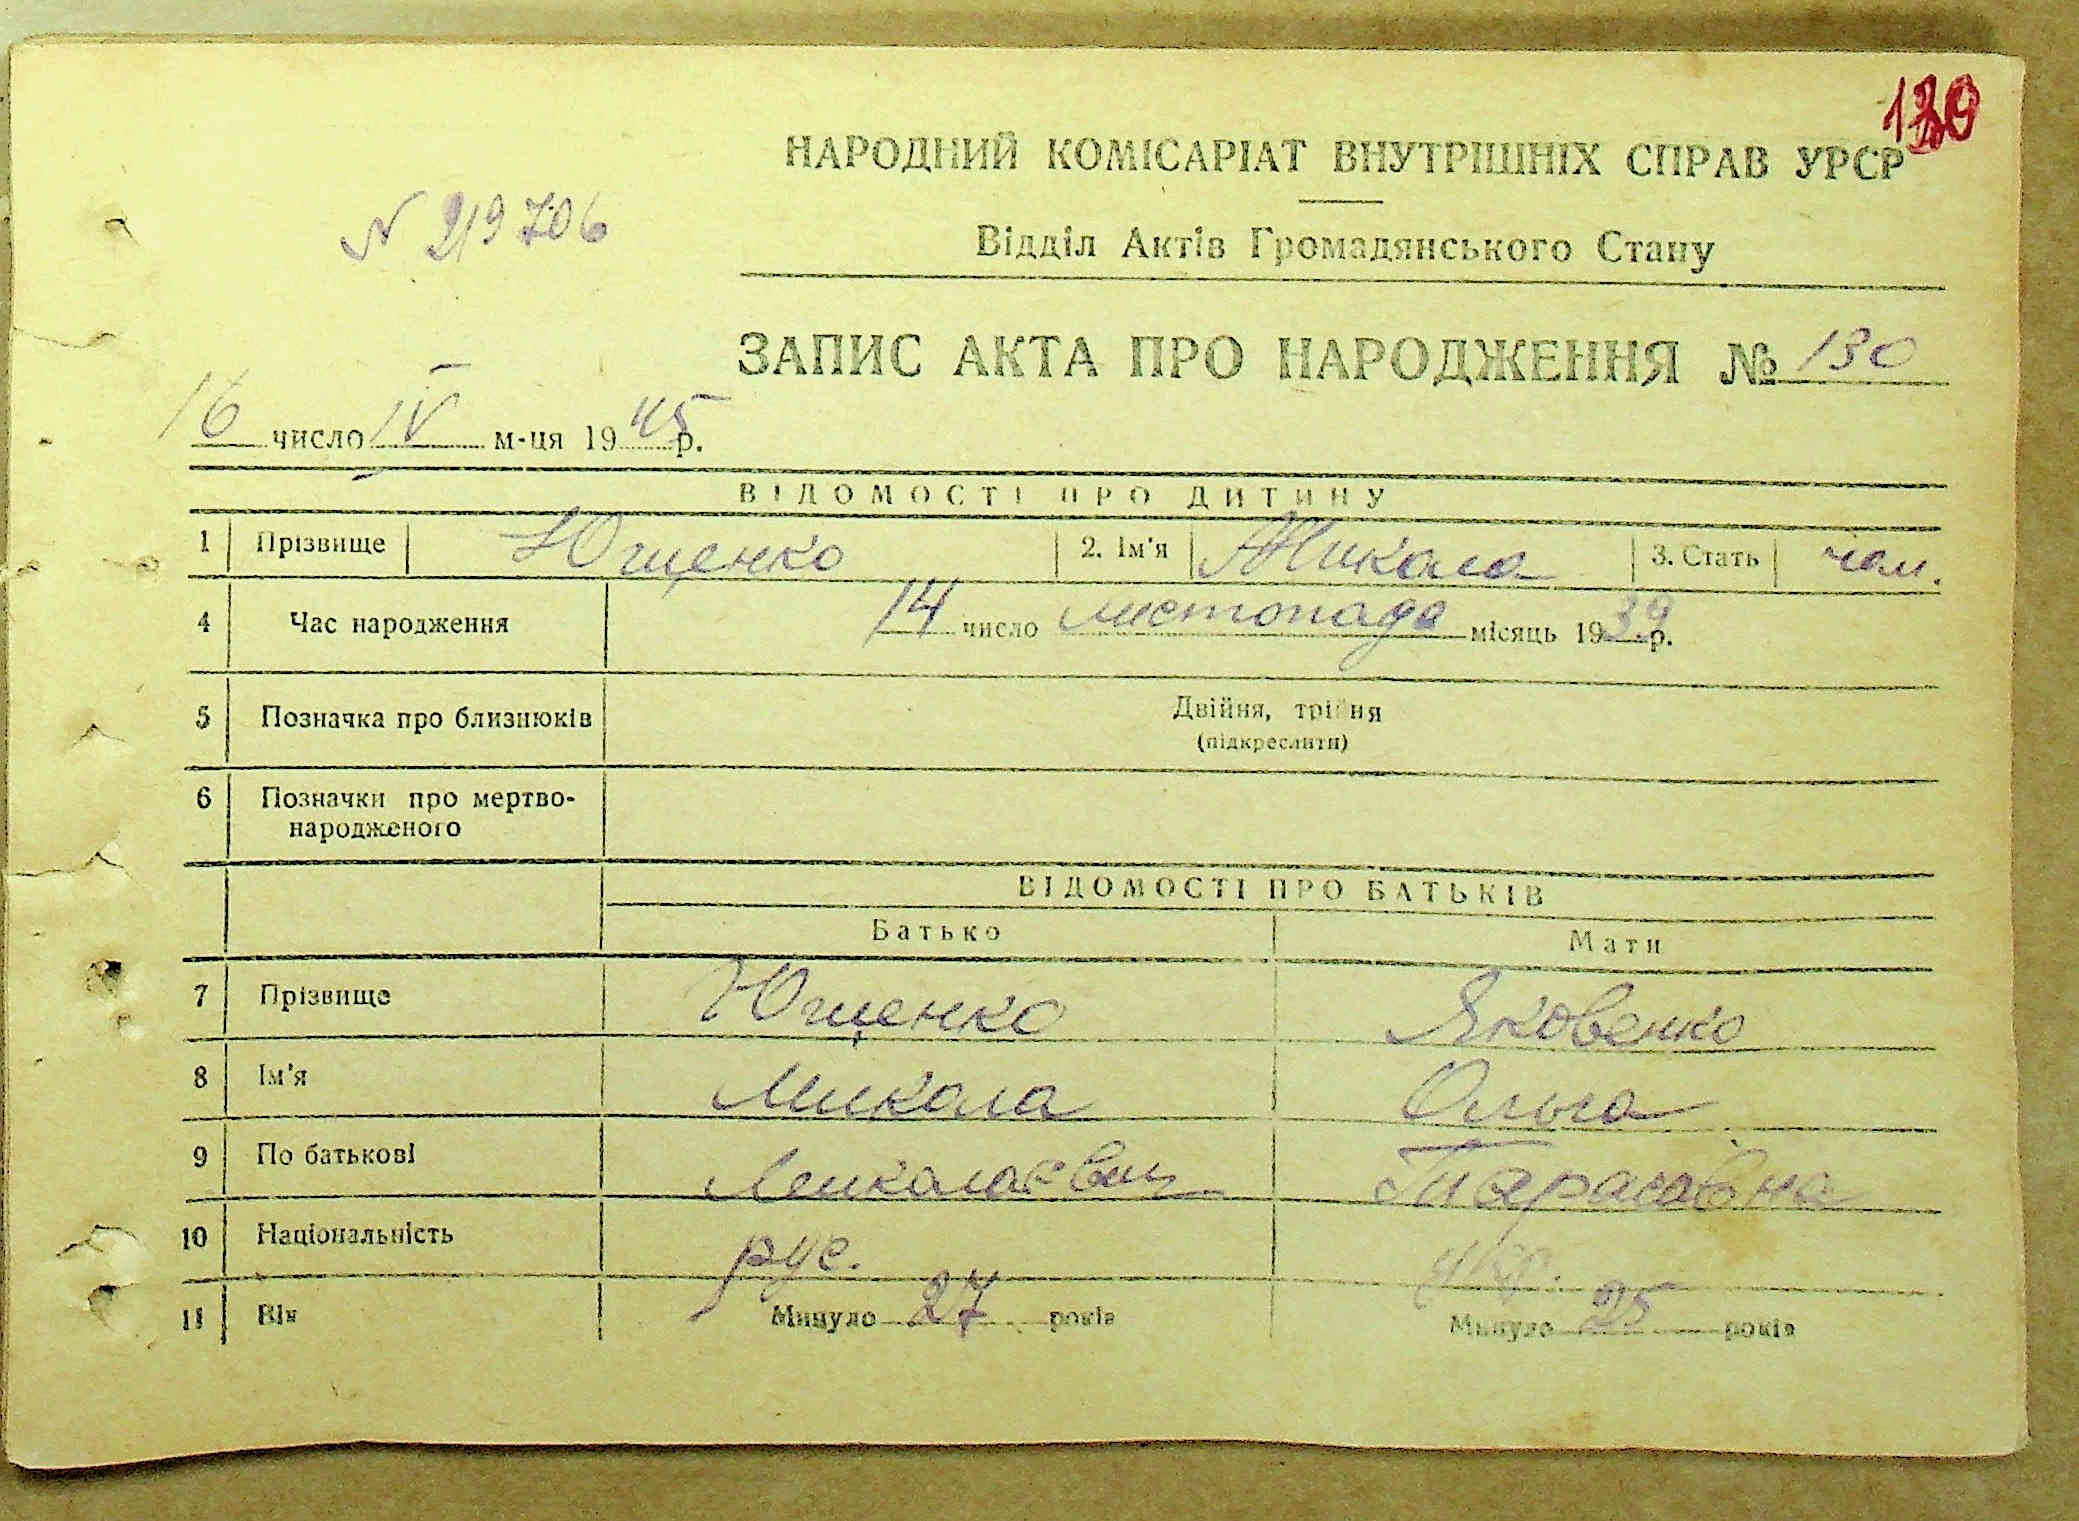 130
НАРОДНИЙ КОМІСАРІАТ ВНУТРІШНІХ СПРАВ УРСР
N 219706
Відділ Актів Громадянського Стану
ЗАПИС АКТА ПРО НАРОДЖЕННЯ № 130
16 число IV м-ця 1945 р.
ВІДОМОСТІ ПРО ДИТИНУ
1 Прізвище Ющенко 2. Ім'я Микола 3. Стать чол.
4 Час народження 14 число листопада місяць 1939 р.
5 Позначка про близнюків Двійня, трійня
(підкреслити)
6 Позначки про мертво-
народженого
ВІДОМОСТІ ПРО БАТЬКІВ
Батько Мати
7 Прізвище Ющенко Яковенко
8 Ім'я Микола Ольга
9 По батькові Миколаєвич Тарасовна
10 Національність рус. укр.
11 Вік Минуло 27 років Минуло 25 років